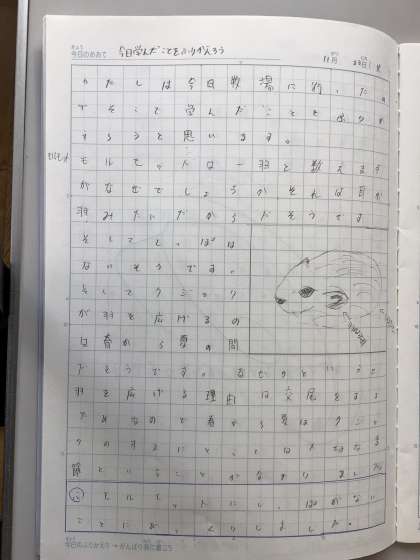 今日のめあて 今日学んだことをふりかえろう 11月 23日
わたしは今日 場に行った
でそこで学んだことをふりか
えろうと思います。
は一羽と数えます
がなぜでしょうかそれは耳が
羽みたいだからだそうです
そしてしっぽは
ないそうです。
そしてクジャク
が羽を広げるの
は春から夏の間
だそうです。なぜかというと
羽を広げる理由は交尾をする
ためなので春から夏はクジャ
クのオスにとっては な季
節ということがわかりました
しっぽがない
ことにびっくりしました。
今日のふりかえり→がんばり表に書こう